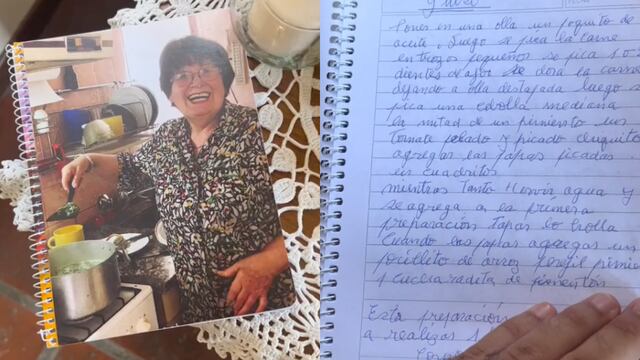 Pones en una olla un poquito de
aceite, Luego se pica la carne
en trozos pequeños se pica 1 o 2
dientes de ajos se dora la carne
dejando a olla destapada luego
pica una cebolla mediana
la mitad de un pimiento un
tomate pelado y picado chiquito
agregar las papas picadas
en cuadritos
mientras tanto Hervir agua y
se agrega a la primera
preparación tapas to holla
cuando las papas agregas un
poutleto de arroz perejil
1 cuccharadeta de pimentón
Esta preparación
a realizas 1